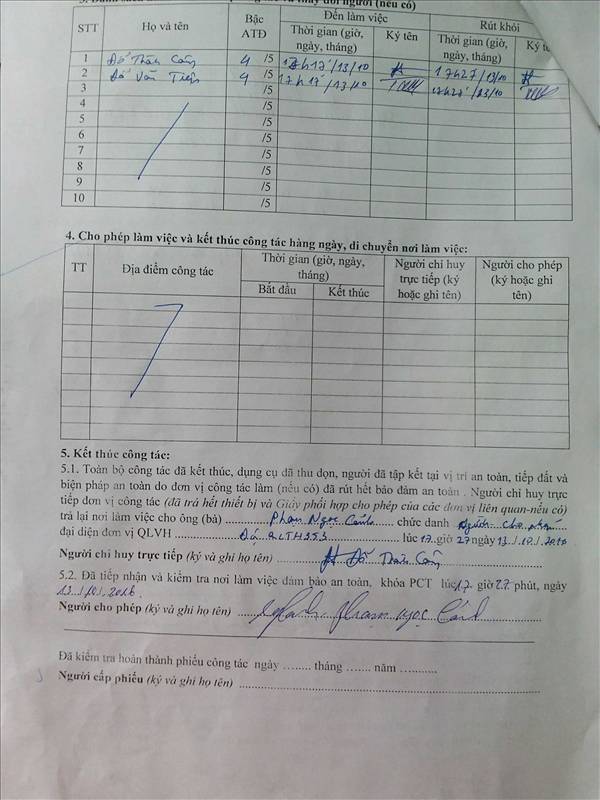 người (nếu có)
STT Họ và tên Bậc ATĐ Đến làm việc Rút khỏi
Thời gian (giờ, ngày, tháng) Ký tên Thời gian (giờ, ngày, tháng) Ký
1 Đỗ Thành 4 /5 17h17'/13/10 17h27/13/10
2 Đỗ Văn Tiếp 4 /5 17h17'/13/10 17h27'/13/10
3 /5
4 /5
5 /5
6 /5
7 /5
8 /5
9 /5
10 /5
4. Cho phép làm việc và kết thúc công tác hàng ngày, di chuyển nơi làm việc:
TT Địa điểm công tác Thời gian (giờ, ngày, tháng) Người chỉ huy trực tiếp (ký hoặc ghi tên) Người cho phép (ký hoặc ghi tên)
Bắt đầu Kết thúc
5. Kết thúc công tác:
5.1. Toàn bộ công tác đã kết thúc, dụng cụ đã thu dọn, người đã tập kết tại vị trí an toàn, tiếp đất và
biện pháp an toàn do đơn vị công tác làm (nếu có) đã rút hết bảo đảm an toàn . Người chỉ huy trực
tiếp đơn vị công tác (đã trả hết thiết bị và Giấy phối hợp cho phép của các đơn vị liên quan-nếu có)
trả lại nơi làm việc cho ông (bà) Phạm Ngọc chức danh Người cho phép
đại diện đơn vị QLVH lúc 17 giờ 27 ngày 13 / 10 /
Người chỉ huy trực tiếp (ký và ghi họ tên) Đỗ Thành
5.2. Đã tiếp nhận và kiểm tra nơi làm việc đảm bảo an toàn, khóa PCT lúc 17 giờ 27 phút, ngày
13 / 10 / 2016
Người cho phép (ký và ghi họ tên) Phạm Ngọc
Đã kiểm tra hoàn thành phiếu công tác ngày ........ tháng ....... năm ...........
Người cấp phiếu (ký và ghi họ tên)